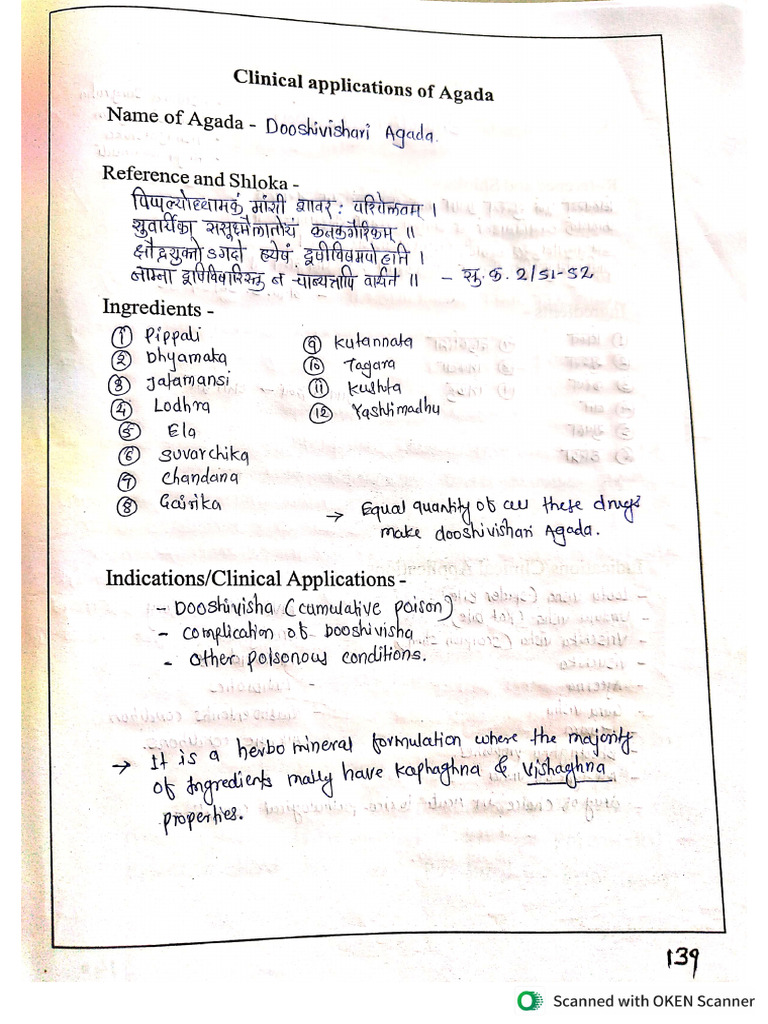 Clinical applications of Agada
Name of Agada - Dooshivishari Agada.
Reference and Shloka -
पिप्पल्योध्यामकं मांसी शावरः परिपेलवम् ।
सुवर्चिका ससूक्ष्मैलातोयं कनकगैरिकम् ॥
क्षौद्रयुक्तोऽगदो ह्येषं दूषीविषमपोहति ।
नाम्ना दूषिविषारिस्तु न चान्यत्रापि वार्यते ॥ - सु. क. 2/51-52
Ingredients -
① Pippali
② Dhyamaka
③ Jatamansi
④ Lodhra
⑤ Ela
⑥ Suvarchika
⑦ Chandana
⑧ Gairika
⑨ Kutannata
⑩ Tagara
⑪ Kushta
⑫ Yashtimadhu
→ Equal quantity of all these drugs
make dooshivishari Agada.
Indications/Clinical Applications -
- Dooshivisha (cumulative poison)
- complication of Dooshivisha
- Other poisonous conditions.
→ It is a herbo mineral formulation where the majority
of Ingredients mally have Kaphaghna & Vishaghna
properties.
139
Scanned with OKEN Scanner